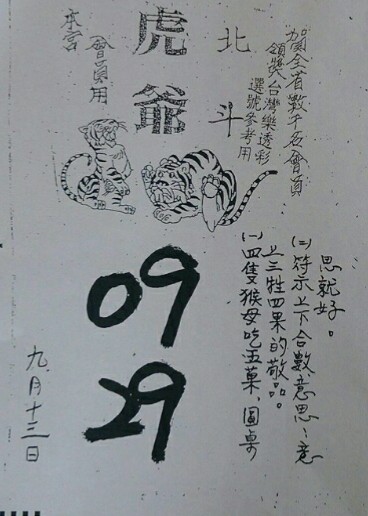 賀全省數千名會員
領獎台灣樂透彩
選號參考用
北斗
虎爺
會員用
本宮
(一)四隻猴母吃五菓、圓桌
上三牲四果的敬品。
(二)符示上下合數意思、意
思就好。
09
29
九月十三日